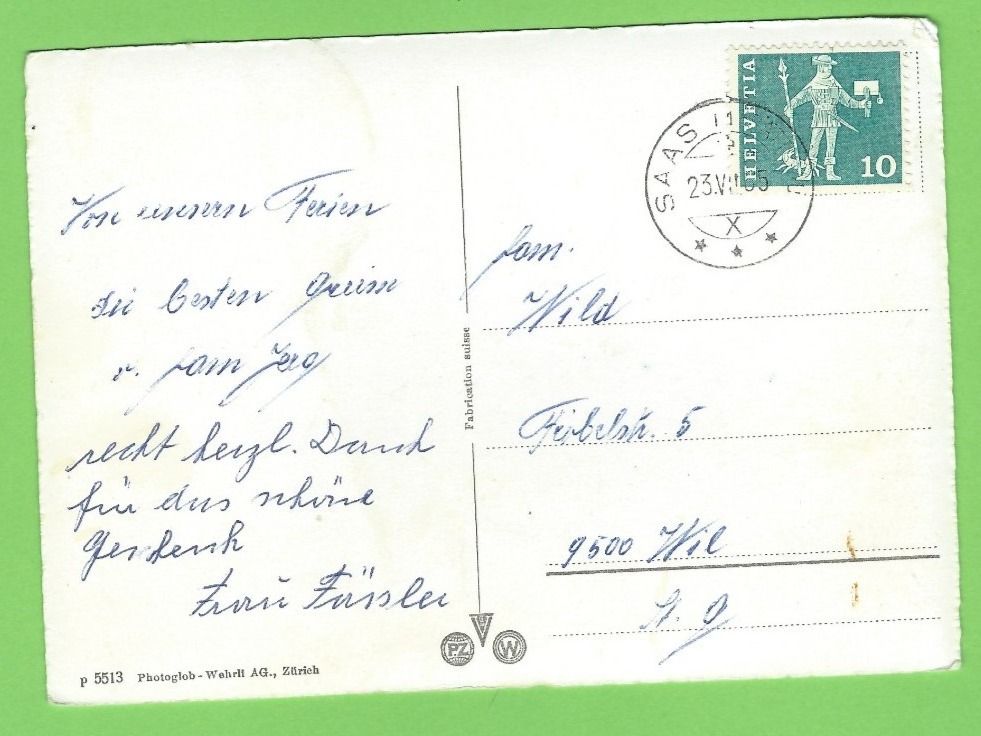 Von unsern Ferien
die besten Grüsse
v. fam
recht herzl. Dank
für das schöne
Geschenk
Frau Fässler
p 5513 Photoglob - Wehrli AG., Zürich
Fabrication suisse
PZ
W
HELVETIA
10
SAAS
23.VII.65
X
fam.
Wild
5
9500 Wil
St. G